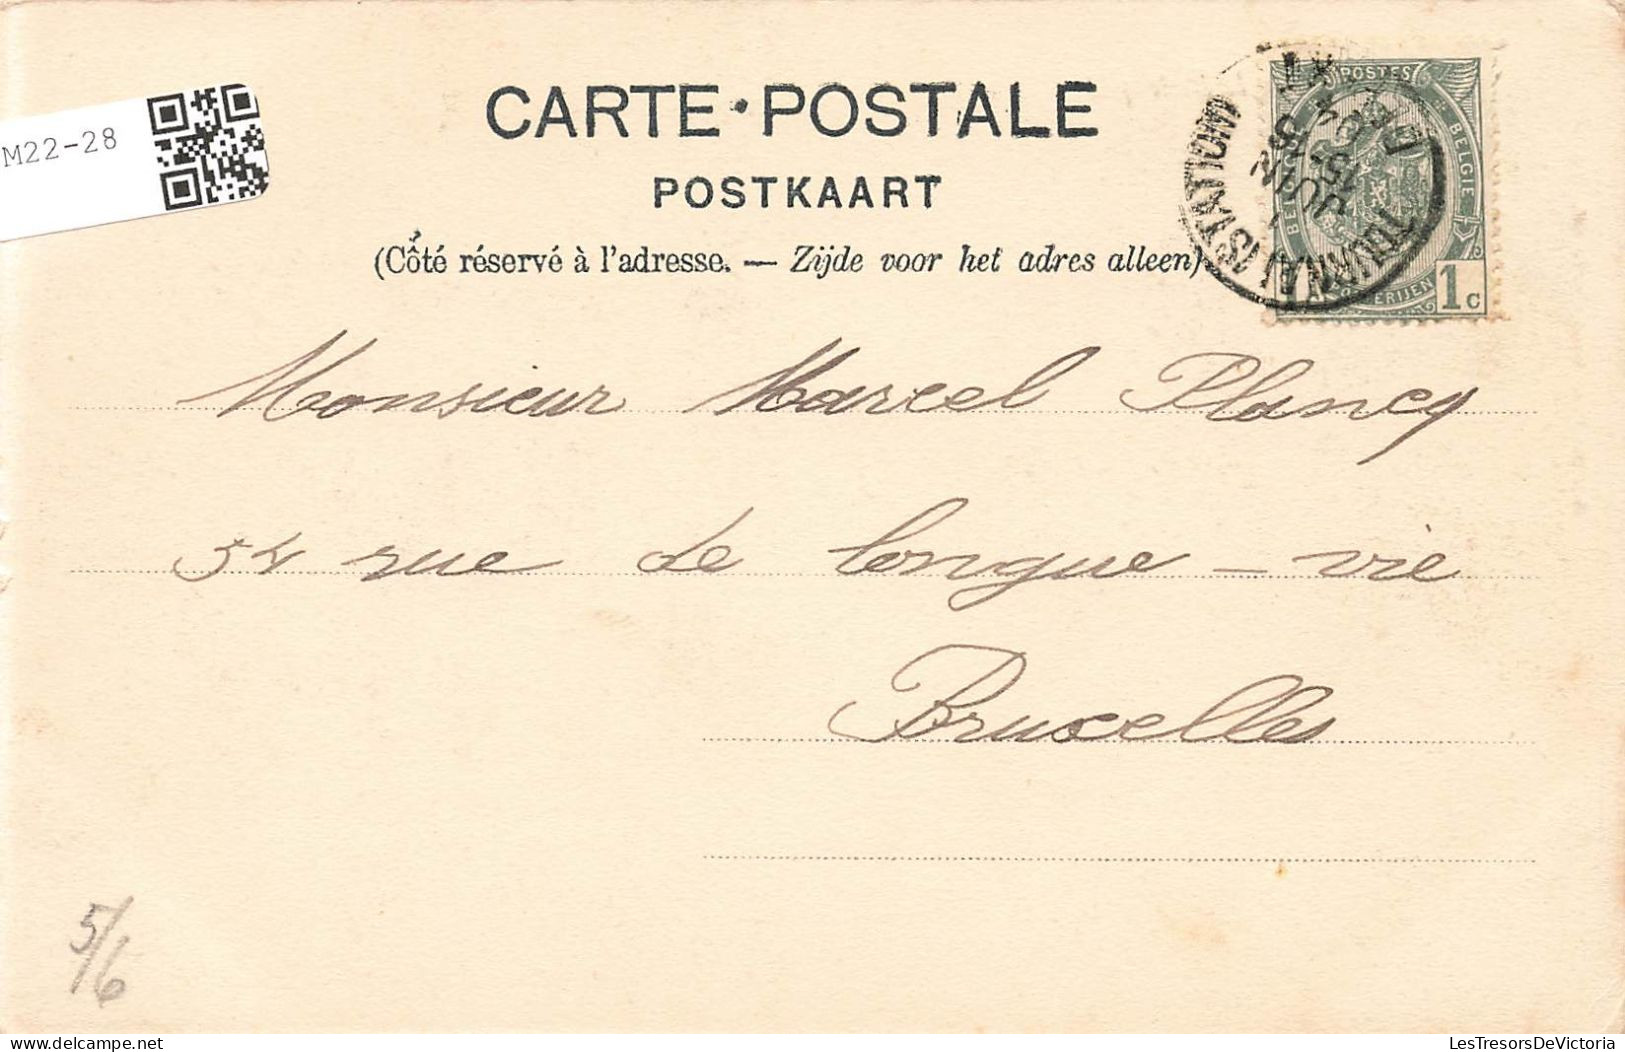 M22-28
CARTE·POSTALE
POSTKAART
(Côté réservé à l'adresse. — Zijde voor het adres alleen)
POSTES
BELGIE
1c
TOURNAI (STATION)
JUIN
15
Monsieur Marcel Plancq
54 rue de longue-vie
Bruxelles
5/6
LesTresorsDeVictoria
delcampe.net